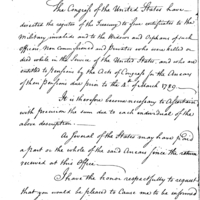 The Congress of the United States have
directed the register of the Treasury to give certificates to the
Military invalids and to the Widows and Orphans of such
officers, Non Commissioned and Privates who were killed or
died while in the Service of the United States, and who are
entitled to pensions by the Acts of Congress for the arrears
of their pensions due prior to the 4th of March 1789.
It is therefore become necessary to ascertain
with precision the sum due to each individual of the
above description.
As several of the States may have paid
a part or the whole of the said arrears since the returns
received at this Office.
I have the honor respectfully to request
that you would be pleased to cause me to be informed